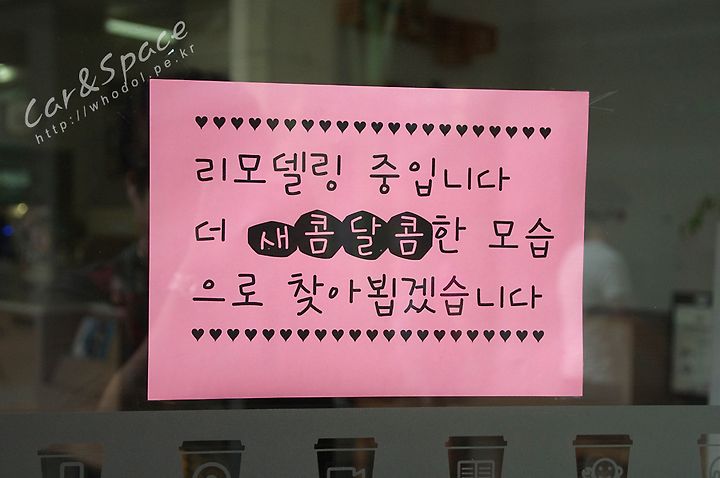 Car&Space
http://whodol.pe.kr
♥♥♥♥♥♥♥♥♥♥♥♥♥♥♥♥♥♥♥♥
리모델링 중입니다
더 새콤달콤한 모습
으로 찾아뵙겠습니다
♥♥♥♥♥♥♥♥♥♥♥♥♥♥♥♥♥♥♥♥